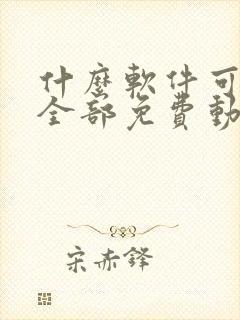 什麼軟件可
全部免費動
宋赤鋒